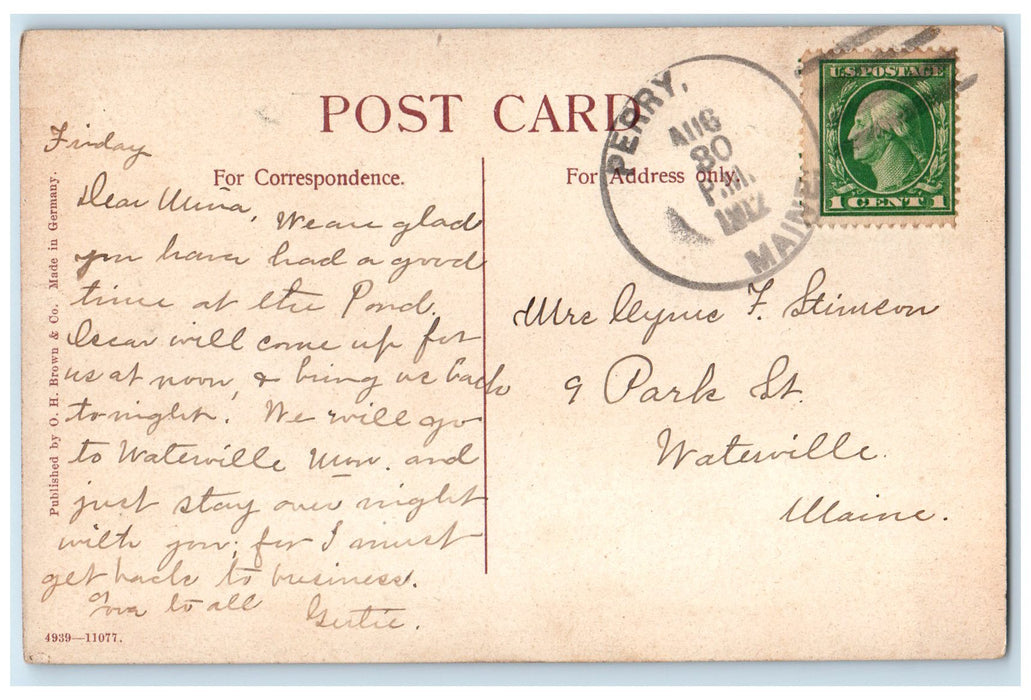 POST CARD
For Correspondence.
For Address only.
PERRY,
AUG
30
P.M.
1912
MAINE
U.S. POSTAGE
1 CENT 1
Published by O. H. Brown & Co. Made in Germany.
Friday
Dear Mina, We are glad
you have had a good
time at the Pond.
Oscar will come up for
us at noon, & bring us back
tonight. We will go
to Waterville Mon. and
just stay over night
with you; for I must
get back to business.
Love to all
Gertie.
4939—11077.
Mrs Cyrus F. Stimson
9 Park St.
Waterville.
Maine.